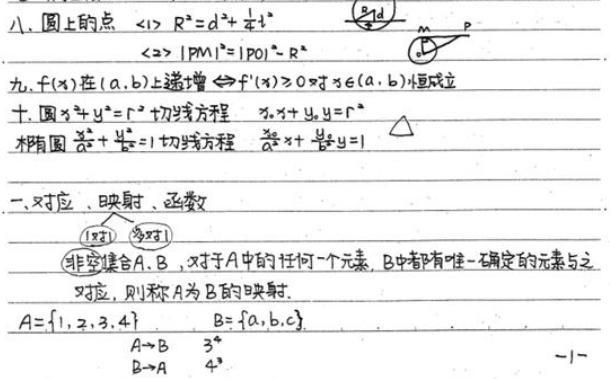 八、圆上的点 <1> R²=d²+¼l²
R d
<2> |PM|²=|PO|²-R²
M P
九、f(x)在(a,b)上递增⇔f'(x)≥0对x∈(a,b)恒成立
十、圆x²+y²=r²切线方程 x₀x+y₀y=r²
椭圆x²/a²+y²/b²=1切线方程 x₀/a²x+y₀/b²y=1 △
一、对应、映射、函数
1对1 多对1
非空集合A、B,对于A中的任何一个元素,B中都有唯一确定的元素与之
对应,则称A为B的映射.
A={1,2,3,4} B={a,b,c}
A→B 3⁴
B→A 4³
-1-